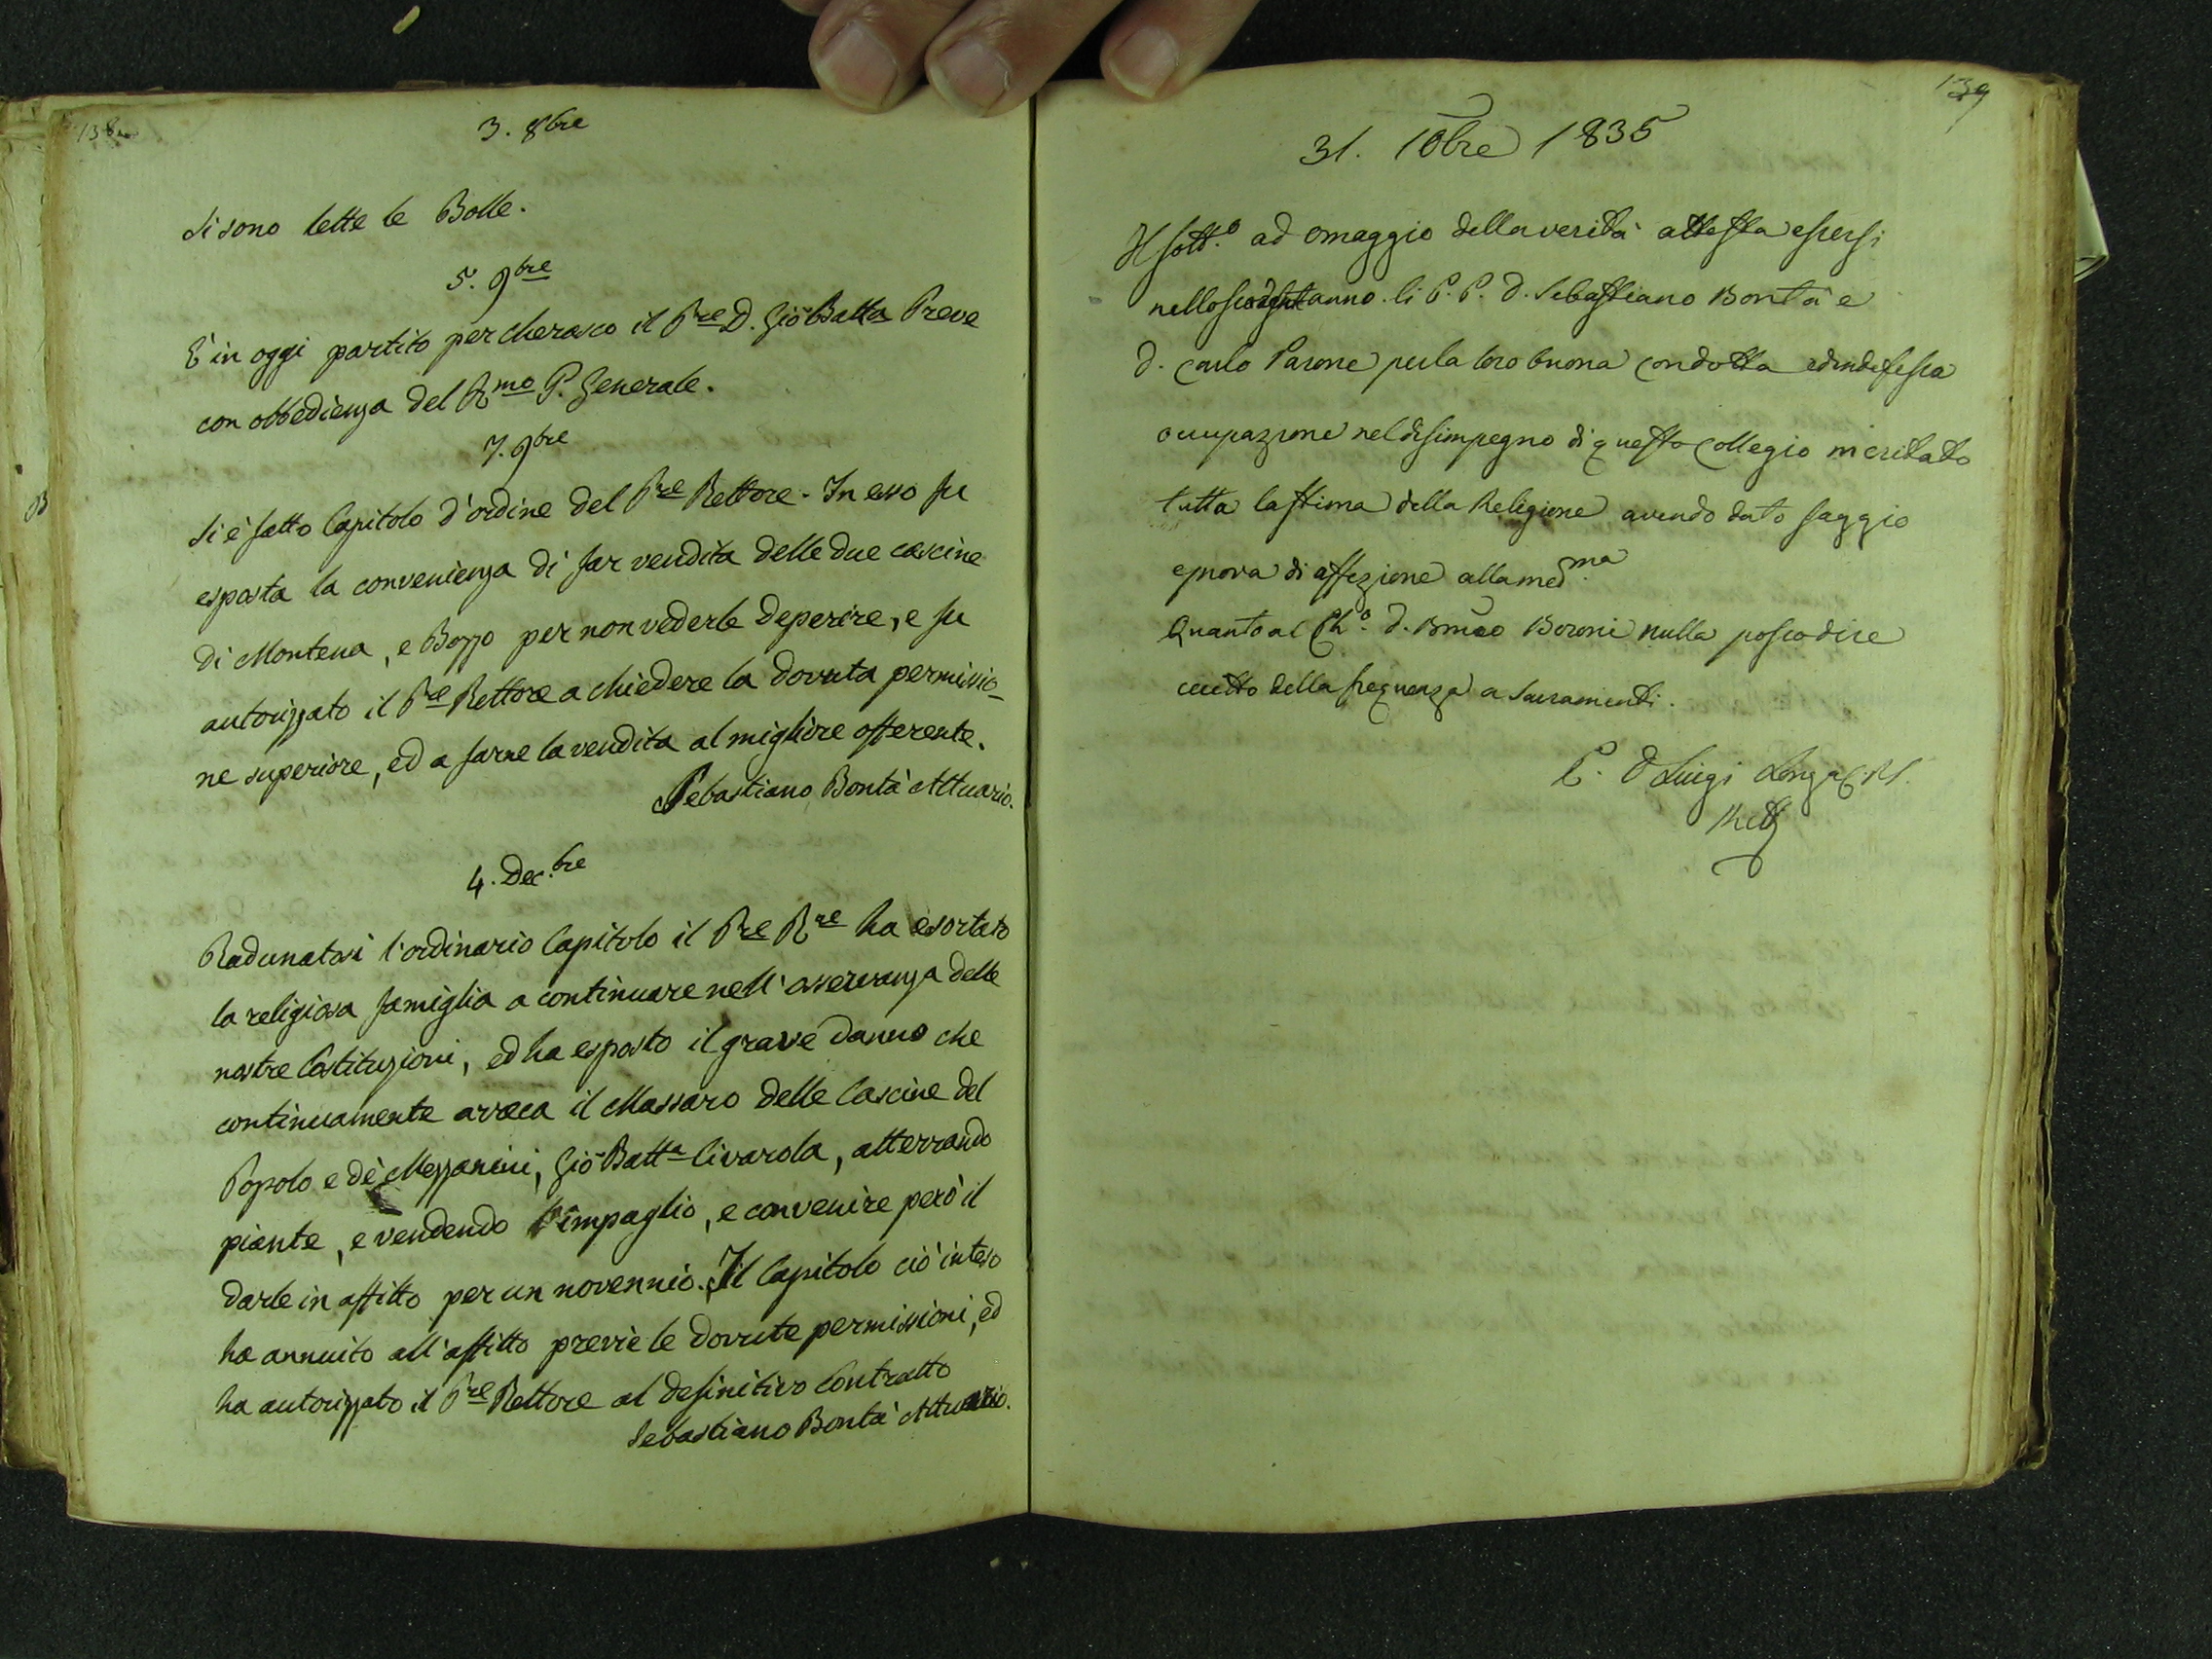 138
3. 8bre
Si sono lette le Bolle.
5. 9bre
È in oggi partito per Cherasco il Pre D. Gio Batta Preve
con obbedienza del Rmo P. Generale.
7. 9bre
Si è fatto Capitolo d'ordine del Pre Rettore. In esso fu
esposta la convenienza di far vendita delle due cascine
di Montena, e Bozzo per non vederle deperire, e fu
autorizzato il Pre Rettore a chiedere la dovuta permissio_
ne superiore, ed a farne la vendita al migliore offerente.
Sebastiano Bontà Attuario.
4. Dec.bre
Radunatosi l'ordinario Capitolo il Pre Rre ha esortato
la religiosa famiglia a continuare nell'osservanza delle
nostre Costituzioni, ed ha esposto il grave danno che
continuamente arreca il Massaro delle Cascine del
Popolo e dè Mezzanini, Gio Batta Civarola, atterrando
piante, e vendendo l'impaglio, e convenire però il
darle in affitto per un novennio. Il Capitolo ciò inteso
ha annuito all'affitto previe le dovute permissioni, ed
ha autorizzato il Pre Rettore al definitivo Contratto
Sebastiano Bontà Attuario.
139
31. 10bre 1835
Il sott.o ad omaggio della verità attesta essersi
anno li P. P. D. Sebastiano Bontà e
D. Carlo Parone per la loro buona condotta ed indefessa
occupazione nel disimpegno di questo Collegio meritato
tutta la stima della Religione avendo dato saggio
e prova di affezione alla med.ma
Quanto al Ch.o D. Boroni nulla posso dire
eccetto della frequenza a Sacramenti.
P. D Luigi Longa C.R.S.
Rett